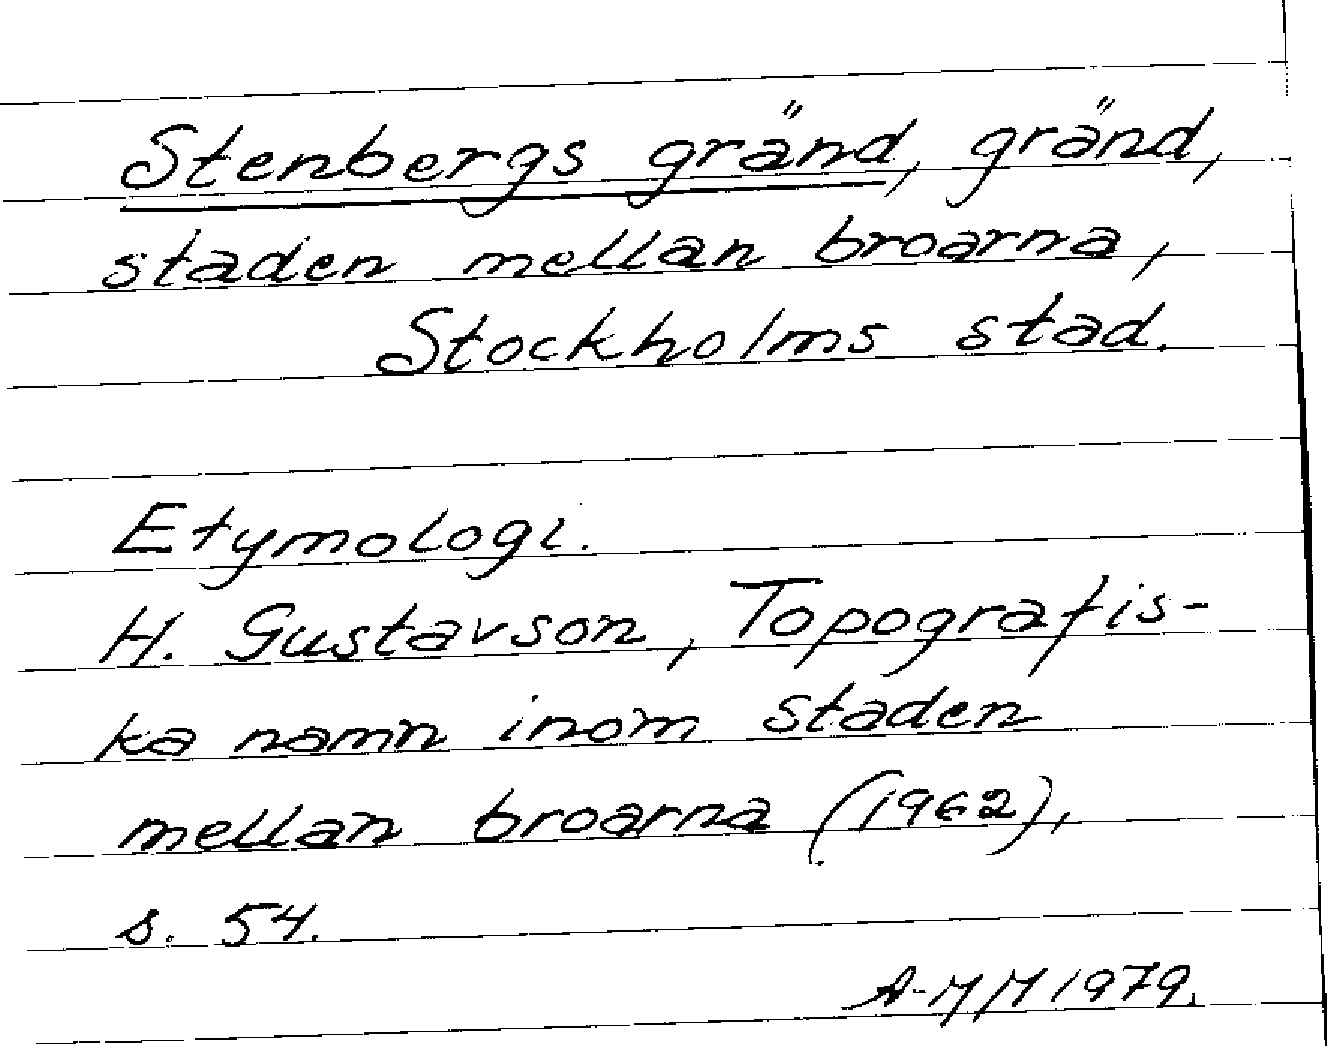 Stenbergs gränd, gränd,
staden mellan broarna,
Stockholms stad.
Etymologi.
H. Gustavson, Topografis-
ka namn inom staden
mellan broarna (1962),
s. 54.
A-MM 1979.